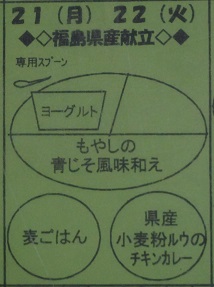 21(月) 22(火)
◆◇福島県産献立◇◆
専用スプーン
ヨーグルト
もやしの
青じそ風味和え
麦ごはん
県産
小麦粉ルウの
チキンカレー